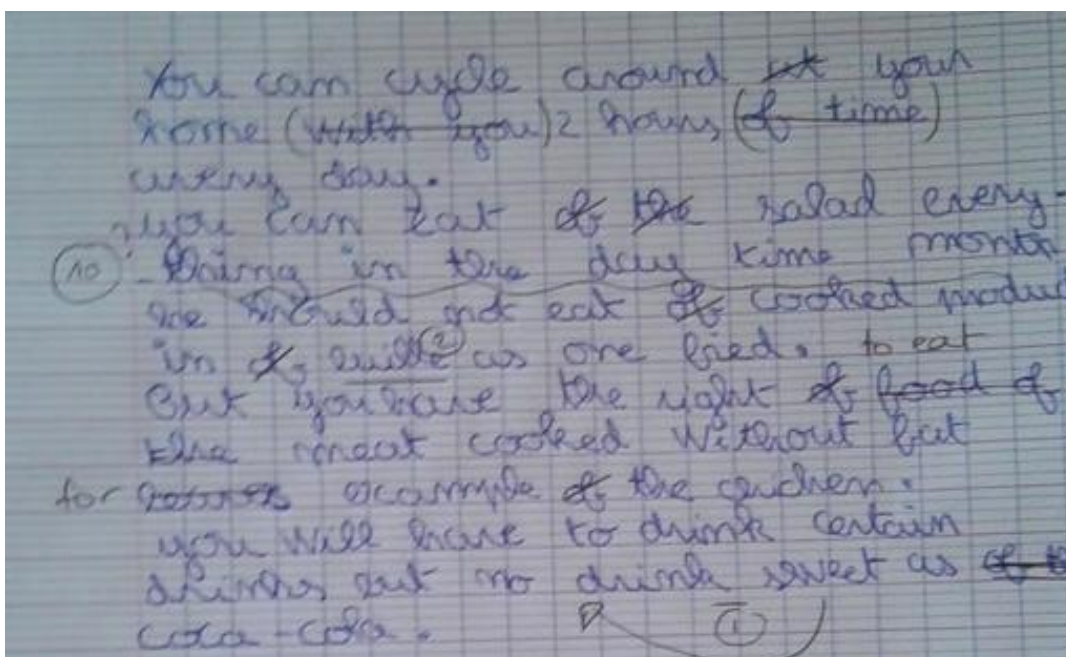 You can cycle around your
home (with you) 2 hours, (of time)
every day.
you can eat of the salad every-
(10) thing in the day time month
we should not eat of cooked produ
in (2) as one fried. to eat
But you have the right of food of
the meat cooked without fat
for example of the
you will have to drink certain
drinks but no drink sweet as
coca-cola. (1)